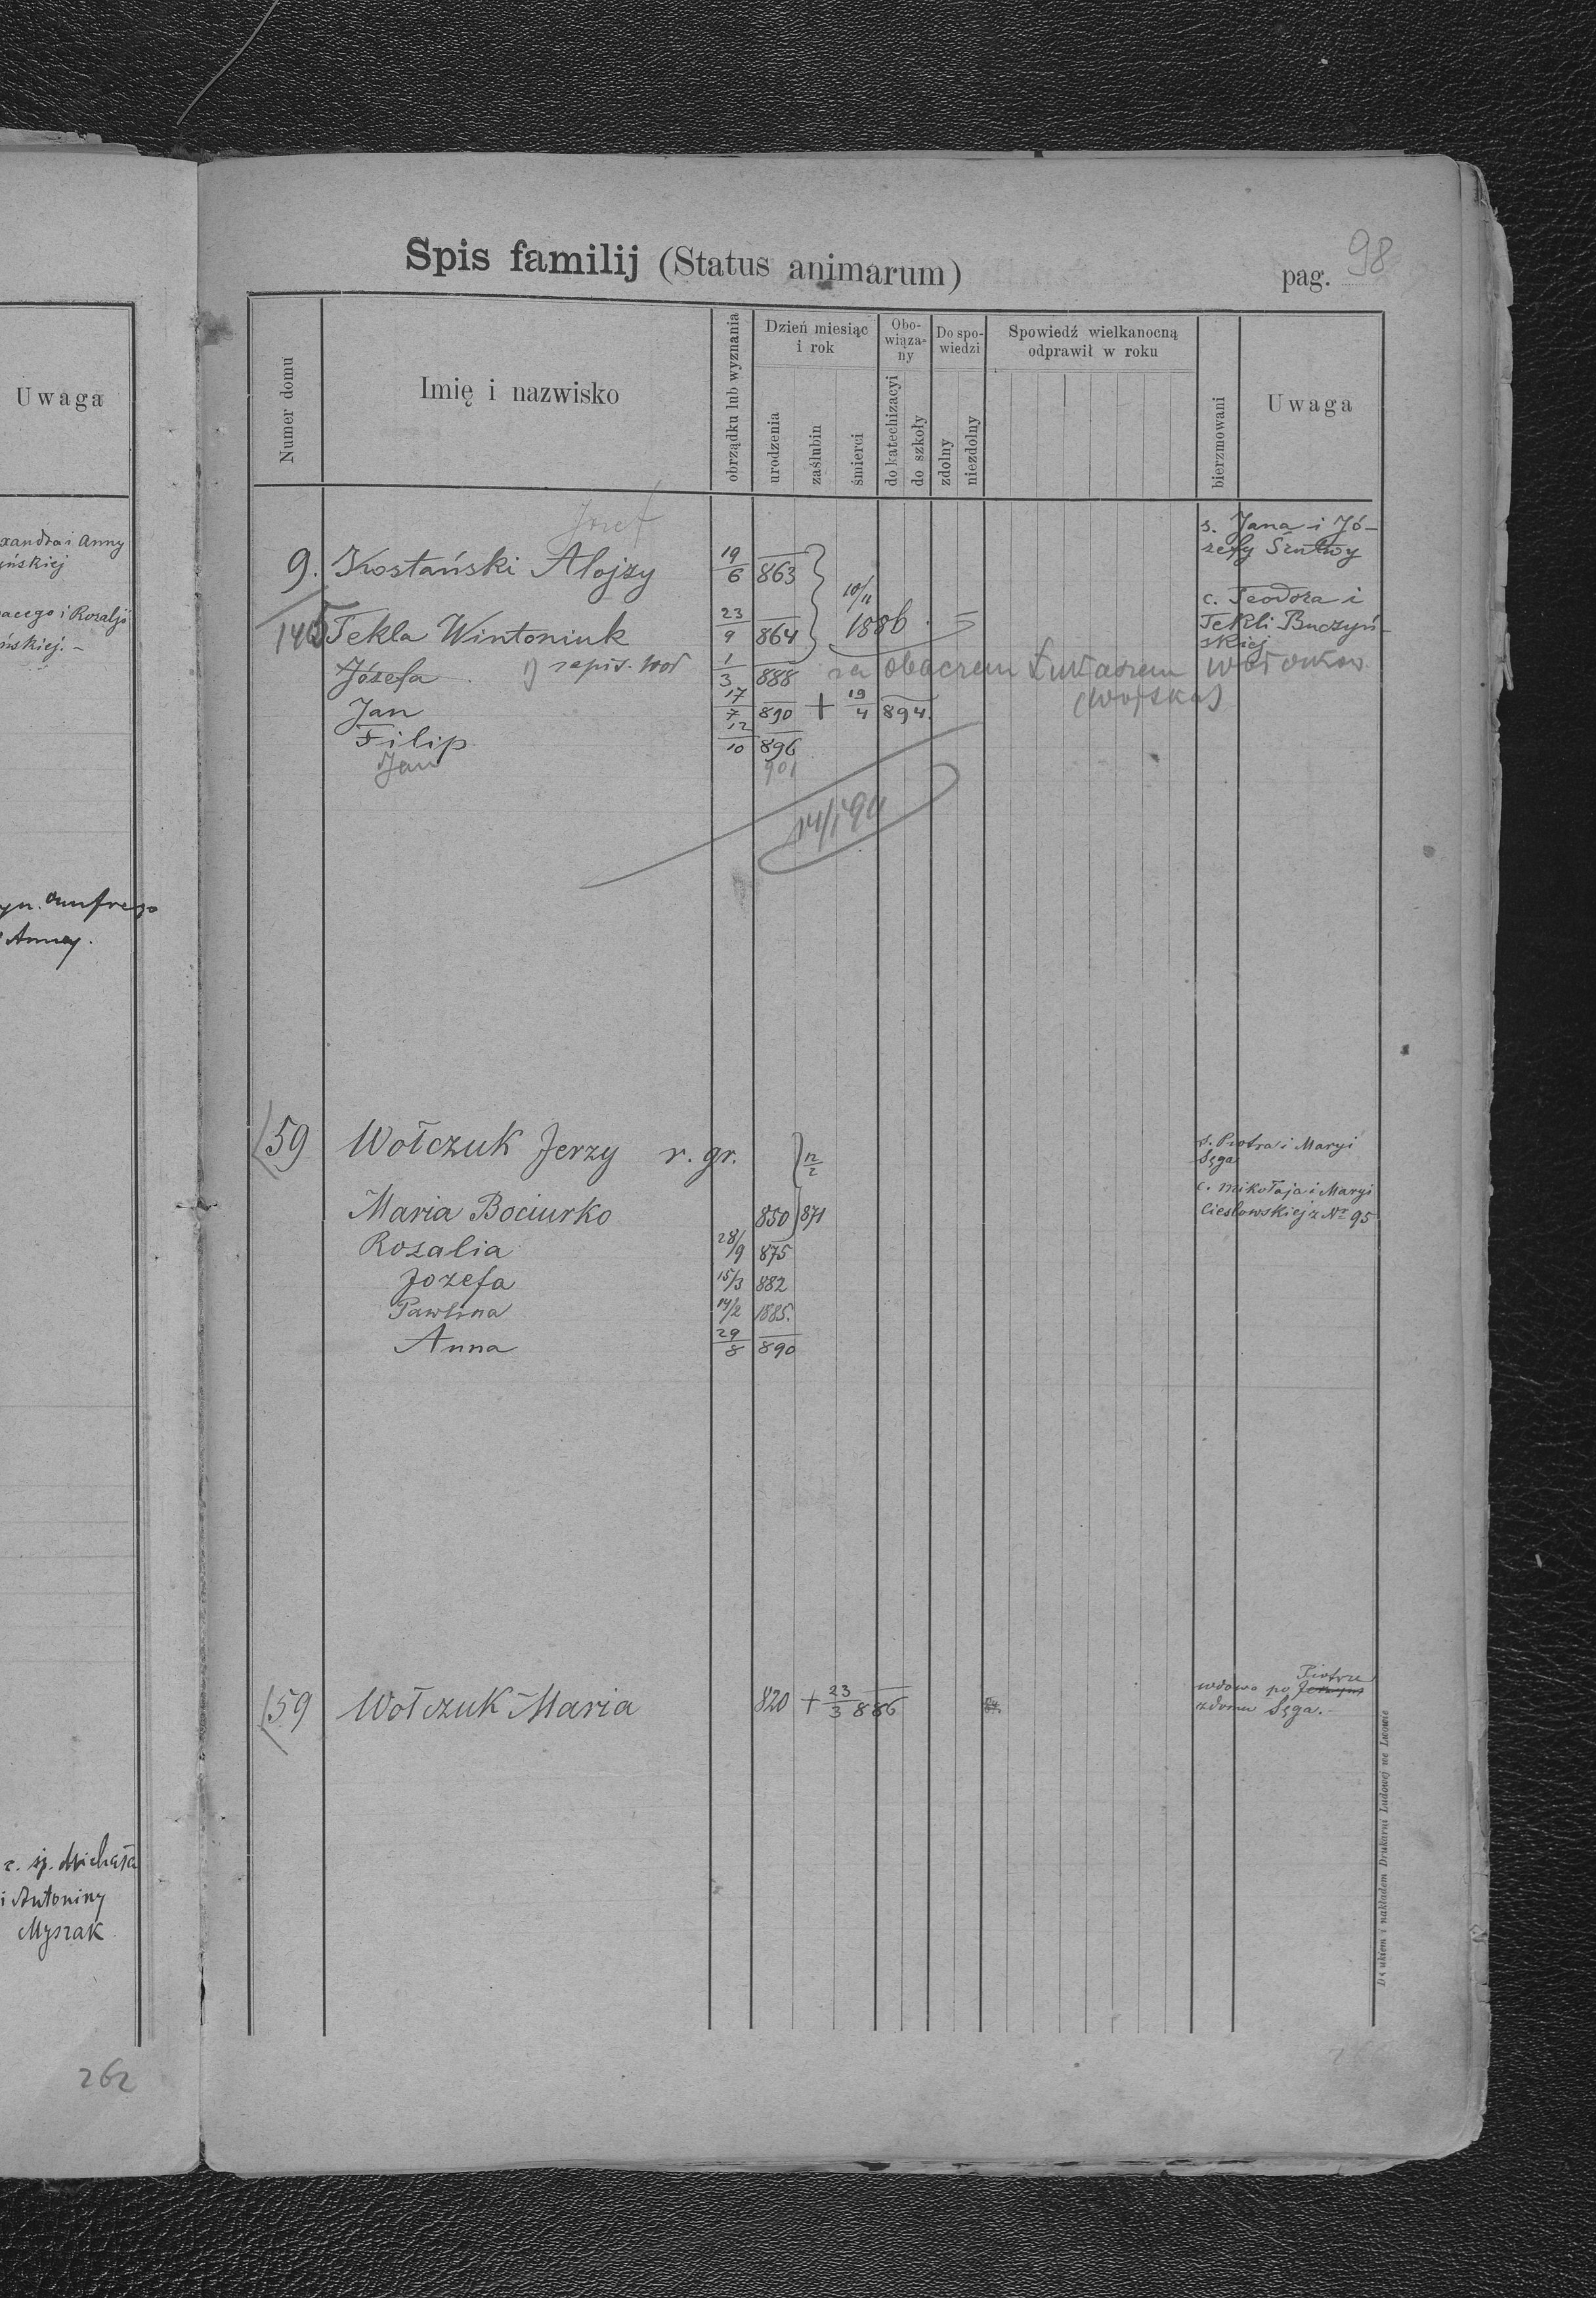 Uwaga
xandra i Anny
ińskiej
acego i Rozalji
ńskiej. –
Anny.
c. śp. Michała
i Antoniny
Myszak
262
Spis familij (Status animarum)
pag. 98
Numer domu
Imię i nazwisko
obrządku lub wyznania
Dzień miesiąc i rok
urodzenia
zaślubin
śmierci
Obowiąza-ny
do katechizacyi
do szkoły
Do spo-wiedzi
zdolny
niezdolny
Spowiedź wielkanocną odprawił w roku
bierzmowani
Uwaga
Józef
s. Jana i Jó-
9. Kostański Alojzy 19/6 863 zefy Szutwy
10/11 1886
c. Teodora i
145 Tekla Wintoniuk 23/9 864 Tekli Buczyń-
skiej
Józefa 1) zapis. 1/3 888 za Łukaszem
(Wojska)
Jan 17/7 890 + 19/4 894.
Filip 12/10 896
Jan 901
59 Wołczuk Jerzy r. gr. 12/2 s. Piotra i Maryi
Sęga
c. Mikołaja i Maryi
Maria Bociurko 850 871 Cieslowskiej z Nr 95
Rozalia 28/9 875
Jozefa 15/3 882
Pawlina 14/2 1885.
Anna 29/8 890
Piotrze
59 Wołczuk Maria 820 + 23/3 886 wdowa po
z domu Sęga. –
Drukiem i nakładem Drukarni Ludowej we Lwowie